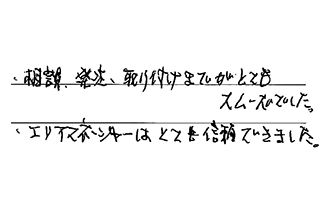 ・相談、発注、取り付けまでがとても
スムーズでした。
・エリアマネージャーはとても信頼できました。